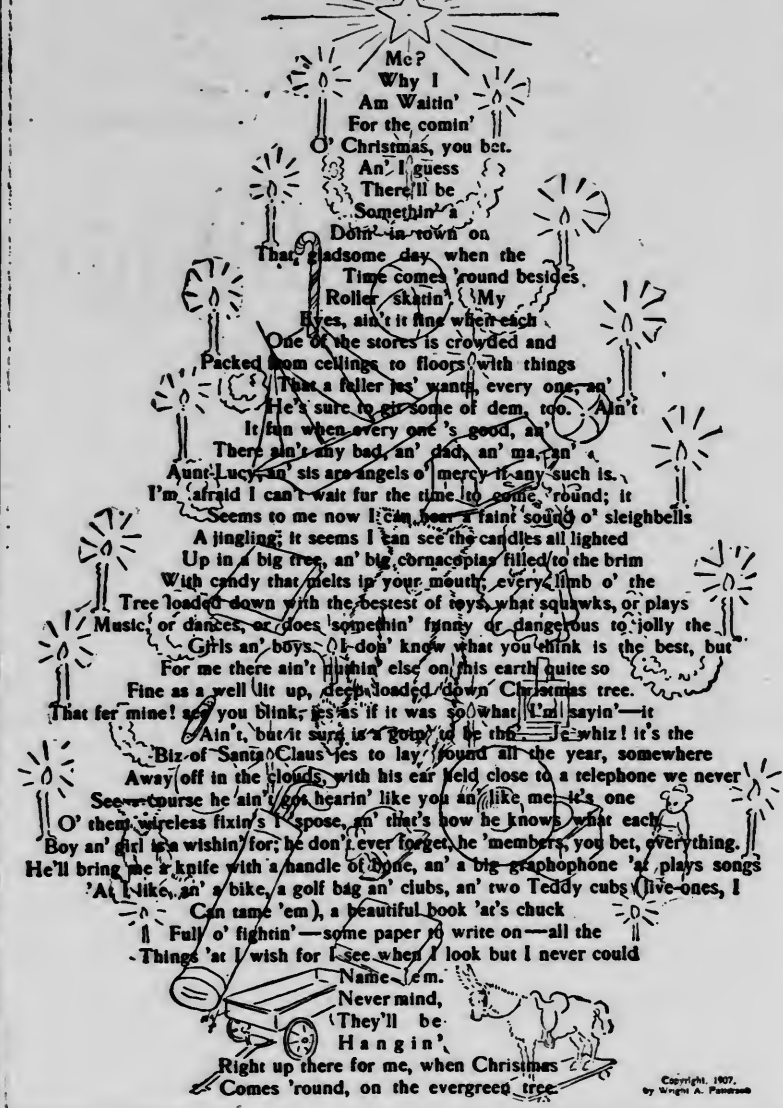 Me?
Why I
Am Waitin'
For the comin'
O' Christmas, you bet.
An' I guess
There'll be
Somethin' a
Doin' in town on
That gladsome day when the
Time comes 'round besides
Roller skatin'. My
Eyes, ain't it fine when each
One of the stores is crowded and
Packed from ceilings to floors with things
That a feller jes' wants, every one, an'
He's sure to git some of dem, too. Ain't
It fun when every one 's good, an'
There ain't any bad, an' dad, an' ma, an'
Aunt Lucy, an' sis are angels o' mercy if any such is.
I'm afraid I can't wait fur the time to come 'round; it
Seems to me now I can hear a faint sound o' sleighbells
A jingling; it seems I can see the candles all lighted
Up in a big tree, an' big cornacopias filled to the brim
With candy that melts in your mouth; every limb o' the
Tree loaded down with the bestest of toys, what squawks, or plays
Music, or dances, or does somethin' funny or dangerous to jolly the
Girls an' boys. I don' know what you think is the best, but
For me there ain't nuthin' else on this earth quite so
Fine as a well lit up, deep loaded down Christmas tree.
That fer mine! see you blink, jes as if it was so what I'm sayin'—it
Ain't, but it sure is a goin' to be tho whiz! it's the
Biz of Santa Claus jes to lay 'round all the year, somewhere
Away off in the clouds, with his ear held close to a telephone we never
See—course he ain't got hearin' like you an' like me; it's one
O' them wireless fixin's I 'spose, an' that's how he knows what each
Boy an' girl is a wishin' for; he don't ever forget, he 'members, you bet, everything.
He'll bring me a knife with a handle of bone, an' a big graphophone 'at plays songs
'At I like, an' a bike, a golf bag an' clubs, an' two Teddy cubs (live-ones, I
Can tame 'em), a beautiful book 'at's chuck
Full o' fightin'—some paper to write on—all the
Things 'at I wish for I see when I look but I never could
Name 'em.
Never mind,
They'll be
Hangin'
Right up there for me, when Christmas
Comes 'round, on the evergreen tree.
Copyright, 1907,
by Wright A. Patterson